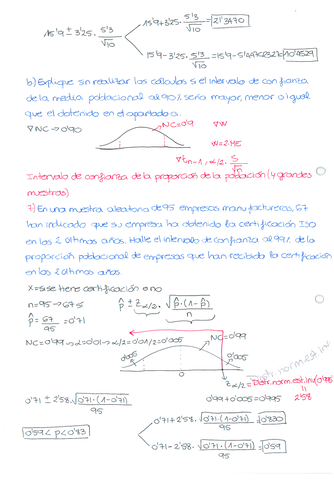 15'9 ± 3'25 · 5'3/√10
15'9 + 3'25 · 5'3/√10 = 21'3470
15'9 - 3'25 · 5'3/√10 = 15'9 - 5'4470
b) Explique sin realizar los cálculos si el intervalo de confianza
de la media poblacional al 90% sería mayor, menor o igual
que el obtenido en el apartado a.
∇NC → 0'90
NC = 0'9
∇W
W = 2·ME
∇t n-1, α/2 · S/√n
Intervalo de confianza de la proporción de la población (4 grandes
muestras)
7) En una muestra aleatoria de 95 empresas manufactureras, 67
han indicado que su empresa ha obtenido la certificación ISO
en los 2 últimos años. Halle el intervalo de confianza al 99% de la
proporción poblacional de empresas que han recibido la certificación
en los 2 últimos años.
X = si se tiene certificación o no
n = 95 → 67 si
p̂ ± z α/2 · √(p̂ · (1-p̂)/n)
p̂ = 67/95 = 0'71
NC = 0'99 → α = 0'01 → α/2 = 0'01/2 = 0'005
NC = 0'99
0'005
0'005
0
z α/2 = Distr.norm.est.inv(0'995
0'99 + 0'005 = 0'995
2'58
0'71 ± 2'58 · √(0'71 · (1-0'71)/95)
0'71 + 2'58 · √(0'71 · (1-0'71)/95) = 0'830
0'71 - 2'58 · √(0'71 · (1-0'71)/95) = 0'59
0'59 < p < 0'83